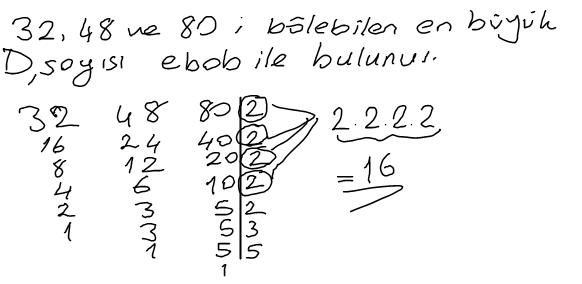 32, 48 ve 80 i bölebilen en büyük
D, sayısı ebob ile bulunur.
32 48 80 | 2
16 24 40 | 2 2.2.2.2
8 12 20 | 2
4 6 10 | 2 = 16
2 3 5 | 2
1 3 5 | 3
1 5 | 5
1